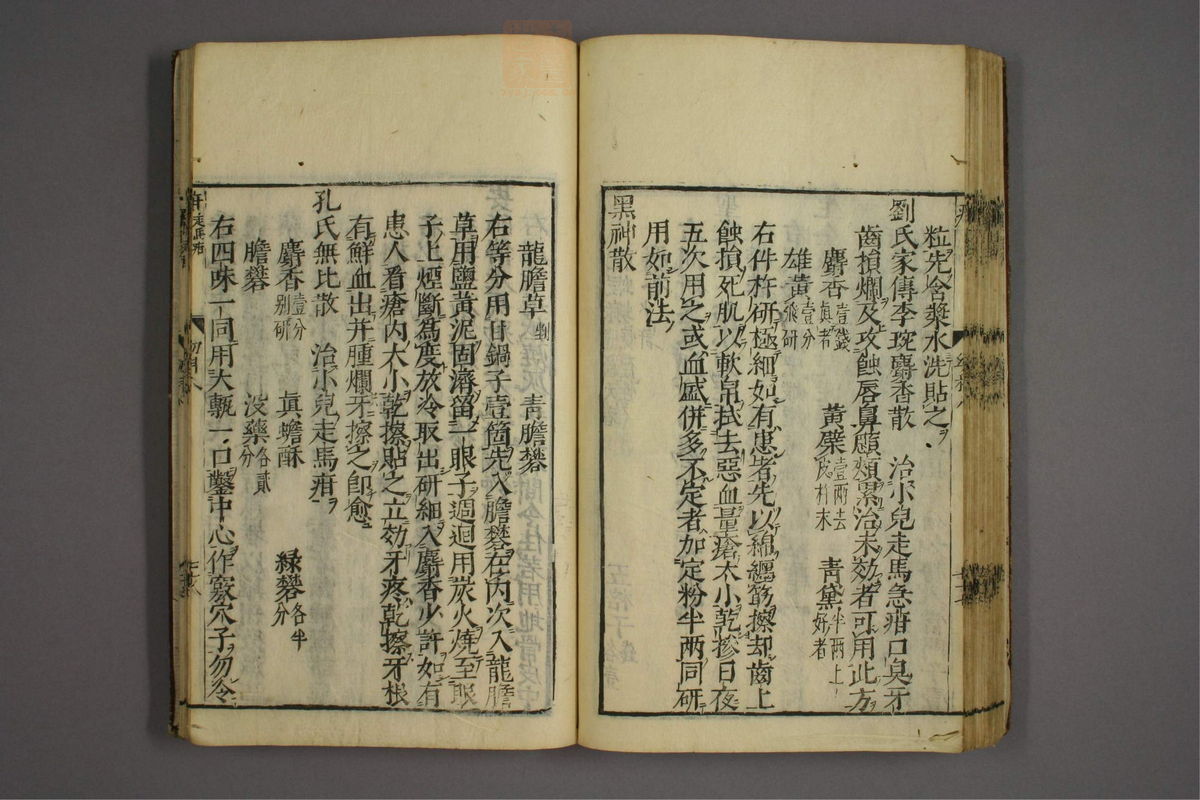 粒先含漿水洗貼之
劉氏家傳李琬麝香散　治小兒走馬急疳口臭牙
齒損爛及攻蝕唇鼻頤頰累治未効者可用此方
麝香壹錢眞者　黃蘗壹兩去皮杵末　青黛半兩上好者
雄黃壹分飛研
右件杵研極細如有患者先以綿纏筯擦却齒上
蝕損死肌以軟帛拭去惡血量瘡大小乾摻日夜
五次用之或血盛併多不定者加定粉半两同研
用如前法
黑神散
龍膽草剉　青膽礬
右等分用甘鍋子壹箇先入膽礬在內次入龍膽
草用鹽黃泥固濟留一眼子週迴用炭火燒至眼
子上煙斷為度放冷取出研細入麝香少許如有
患人看瘡內大小乾擦貼之立効牙疼乾擦牙根
有鮮血出并腫爛牙擦之卽愈
孔氏無比散　治小兒走馬疳
麝香壹分别研　眞蟾酥　綠礬各半分
膽礬　沒藥各貳分
右四味一同用大甎一口鑿中心作窽穴子勿令